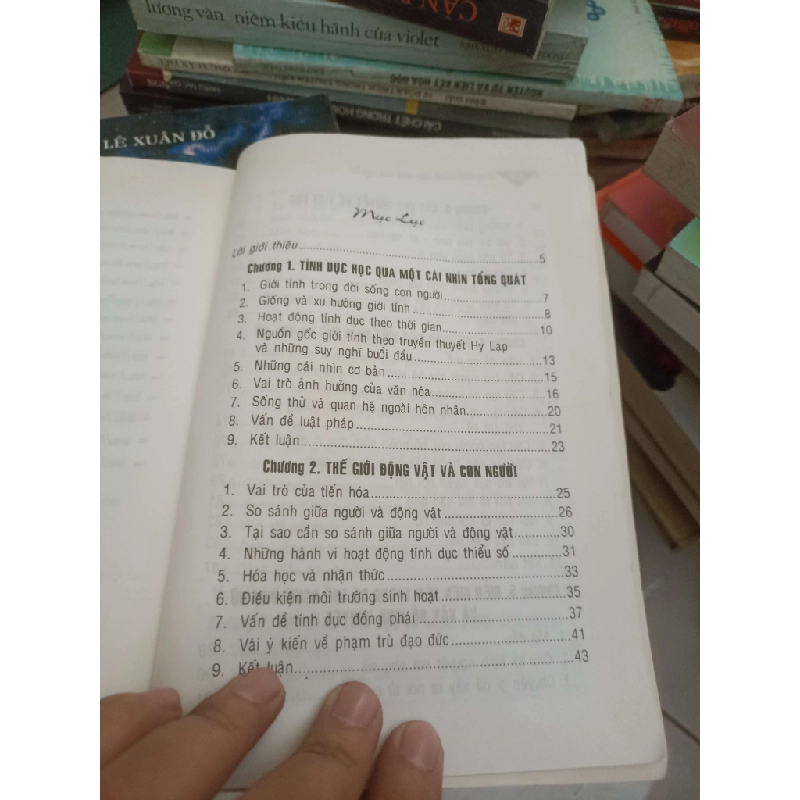 lương văn niềm kiêu hãnh của violet
CĂN
NGUYÊN TỬ VÀ LIÊN KẾT HÓA HỌC
CÁI CHẾT TRONG
LÊ XUÂN ĐỖ
Mục Lục
Lời giới thiệu 5
Chương 1. TÍNH DỤC HỌC QUA MỘT CÁI NHÌN TỔNG QUÁT
1. Giới tính trong đời sống con người 7
2. Giống và xu hướng giới tính 8
3. Hoạt động tính dục theo thời gian 10
4. Nguồn gốc giới tính theo truyền thuyết Hy Lạp
và những suy nghĩ buổi đầu 13
5. Những cái nhìn cơ bản 15
6. Vai trò ảnh hưởng của văn hóa 16
7. Sống thử và quan hệ ngoài hôn nhân 20
8. Vấn đề luật pháp 21
9. Kết luận 23
Chương 2. THẾ GIỚI ĐỘNG VẬT VÀ CON NGƯỜI
1. Vai trò của tiến hóa 25
2. So sánh giữa người và động vật 26
3. Tại sao cần so sánh giữa người và động vật 30
4. Những hành vi hoạt động tính dục thiểu số 31
5. Hóa học và nhận thức 33
6. Điều kiện môi trường sinh hoạt 35
7. Vấn đề tính dục đồng phái 37
8. Vài ý kiến về phạm trù đạo đức 41
9. Kết luận 43